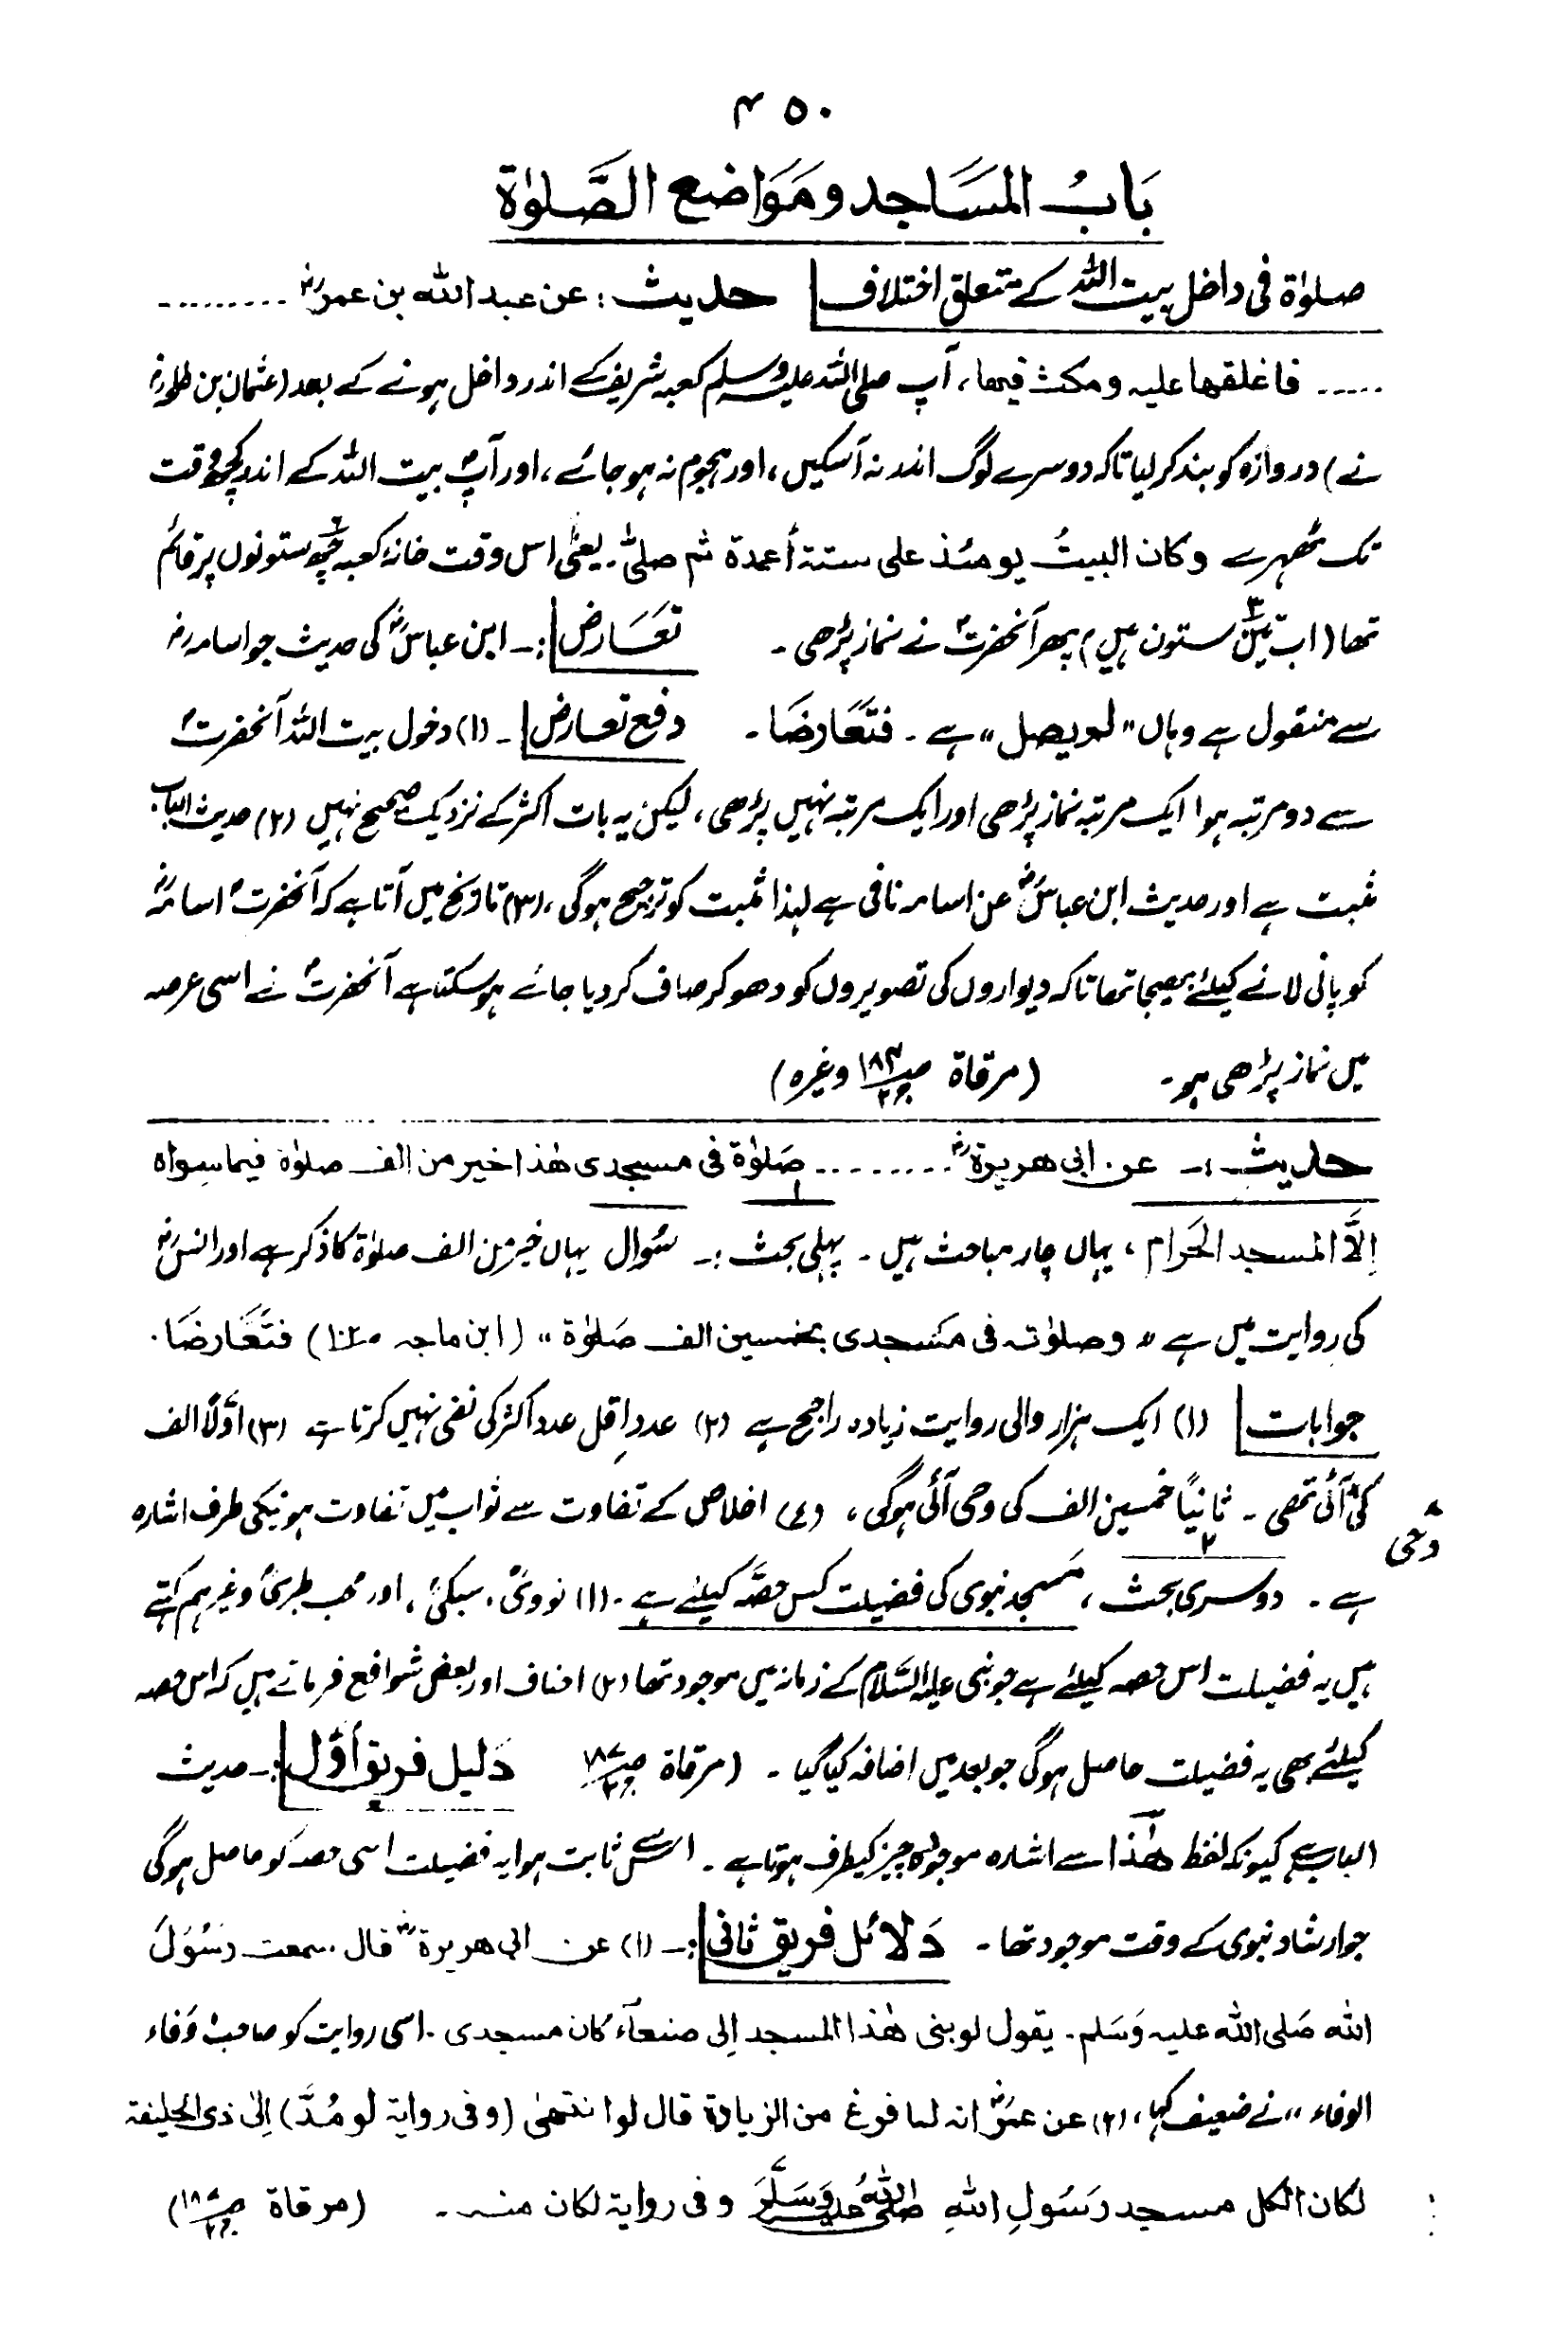 ۴۵۰
بَابُ المسَاجد ومَوَاضع الصَّلوٰة
صلوٰۃ فی داخل بیت اللہ کے متعلق اختلاف حدیث : عن عبد الله بن عمرؓ ---------
----- فاغلقها علیه ومکث فیها، آپ صلی اللہ علیہ وسلم کعبہ شریف کے اندر داخل ہونے کے بعد (عثمان بن طلحہؓ
نے) دروازہ کو بند کرلیا تاکہ دوسرے لوگ اندر نہ آسکیں، اور ہجوم نہ ہو جائے، اور آپؐ بیت اللہ کے اندر کچھ وقت
تک ٹھہرے وکان البیتُ یومئذ علی ستة أعمدة ثم صلیّٰ۔ یعنی اس وقت خانۂ کعبہ چھ۶ ستونوں پر قائم
تھا (اب تین۳ ستون ہیں) پھر آنحضرتؐ نے نماز پڑھی ۔ تعَارض :۔ ابن عباسؓ کی حدیث جو اسامہؓ
سے منقول ہے وہاں "لم یصل" ہے ۔ فتعَارضَا ۔ دفع تعارض ۔ (۱) دخول بیت اللہ آنحضرتؐ
سے دو مرتبہ ہوا ایک مرتبہ نماز پڑھی اور ایک مرتبہ نہیں پڑھی، لیکن یہ بات اکثر کے نزدیک صحیح نہیں (۲) حدیث الباب
مثبت ہے اور حدیث ابن عباسؓ عن اسامہ نافی ہے لہٰذا مثبت کو ترجیح ہوگی، (۳) تاریخ میں آتا ہے کہ آنحضرتؐ اسامہؓ
کو پانی لانے کیلئے بھیجا تھا تاکہ دیواروں کی تصویروں کو دھو کر صاف کر دیا جائے ہوسکتا ہے آنحضرتؐ نے اسی عرصہ
میں نماز پڑھی ہو ۔ (مرقاة ص۱۸۳ ج۲ وغیرہ)
حدیث :۔ عن ابی هریرةؓ -------- صَلوٰة فی مسجدی هٰذا خیر من الف صلوٰة فیما سواه
اِلَّا المسجد الحَرام ، یہاں چار مباحث ہیں ۔ پہلی بحث :۔ سُوال یہاں خیر من الف صلوٰۃ کا ذکر ہے اور انسؓ
کی روایت میں ہے " وصلوٰته فی مَسجدی بخمسین الف صَلوٰة " (ابن ماجہ ص۱۰۲) فتعَارضَا ۔
جوابات (۱) ایک ہزار والی روایت زیادہ راجح ہے (۲) عددِ اقل عدد اکثر کی نفی نہیں کرتا ہے (۳) اوّلاً الف
کی وحی آئی تھی ۔ ثانیًا خمسین الف کی وحی آئی ہوگی، (٤) اخلاص کے تفاوت سے ثواب میں تفاوت ہونیکی طرف اشارہ
ہے ۔ دوسری بحث ، مَسجد نبوی کی فضیلت کس حصّہ کیلئے ہے ۔ (۱) نوویؒ، سبکیؒ، اور محب طبریؒ وغیرہم کہتے
ہیں یہ فضیلت اس حصہ کیلئے ہے جو نبی علیہ السَّلام کے زمانہ میں موجود تھا (۲) احناف اور بعض شوافع فرماتے ہیں کہ اس حصہ
کیلئے بھی یہ فضیلت حاصل ہوگی جو بعد میں اضافہ کیا گیا ۔ (مرقاة ج۲ دَلیل فریق اوّل :۔ حدیث
الباب ہے کیونکہ لفظ هٰذا سے اشارہ موجودہ چیز کیطرف ہوتا ہے ۔ اس سے ثابت ہوا یہ فضیلت اسی حصہ کو حاصل ہوگی
جو ارشاد نبوی کے وقت موجود تھا ۔ دَلائل فریق ثانی :۔ (۱) عن ابی هریرةؓ قال سمعت رسُولَ
الله صَلی الله علیه وَسَلم ۔ یقول لوبنی هٰذا المسجد اِلی صنعآء کان مسجدی ۔ اسی روایت کو صاحبِ وَفاء
الوفاء " نے ضعیف کہا، (۲) عن عمرؓ انه لما فرغ من الزیادة قال لو انتهیٰ (وفی روایة لو مُدَّ) اِلیٰ ذی الحلیفة
لکان الکل مسجد رسُولِ اللهِ صلی اللہ علیہ وَسَلَّمَ وفی روایة لکان منه ۔ (مرقاة ج۲)